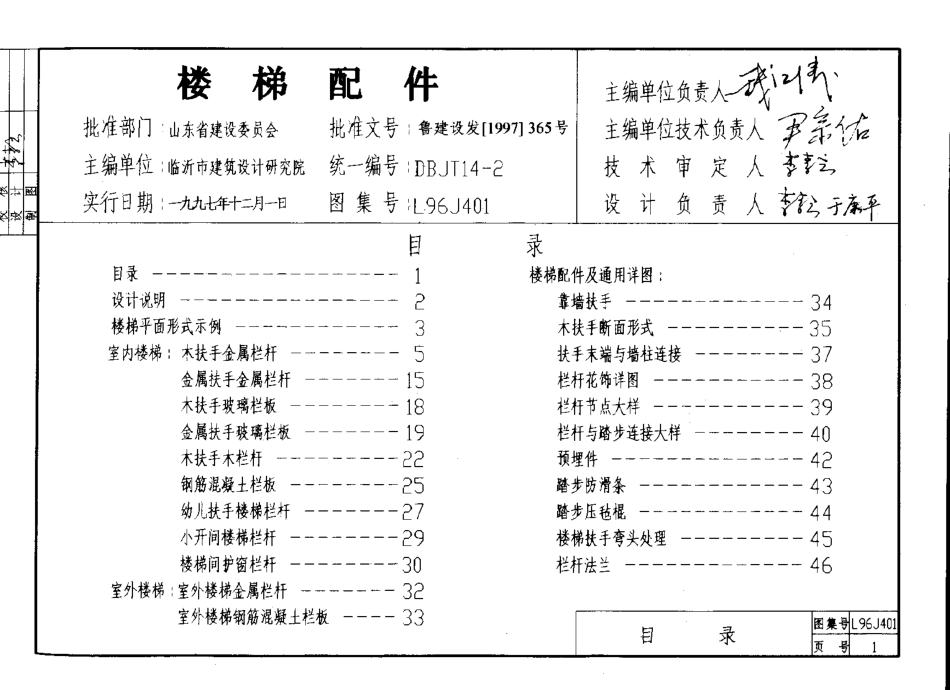 楼梯配件
批准部门:山东省建设委员会 批准文号:鲁建设发[1997]365号
主编单位:临沂市建筑设计研究院 统一编号:DBJT14-2
实行日期:一九九七年十二月一日 图集号:L96J401
主编单位负责人
主编单位技术负责人 尹宗佑
技术审定人
设计负责人 于康平
目录
目录 ------------------ 1
设计说明 ---------------- 2
楼梯平面形式示例 ------------ 3
室内楼梯:木扶手金属栏杆 -------- 5
金属扶手金属栏杆 ------- 15
木扶手玻璃栏板 -------- 18
金属扶手玻璃栏板 ------- 19
木扶手木栏杆 --------- 22
钢筋混凝土栏板 -------- 25
幼儿扶手楼梯栏杆 ------- 27
小开间楼梯栏杆 -------- 29
楼梯间护窗栏杆 -------- 30
室外楼梯:室外楼梯金属栏杆 ------- 32
室外楼梯钢筋混凝土栏板 ---- 33
楼梯配件及通用详图:
靠墙扶手 ------------- 34
木扶手断面形式 ---------- 35
扶手末端与墙柱连接 -------- 37
栏杆花饰详图 ----------- 38
栏杆节点大样 ----------- 39
栏杆与踏步连接大样 -------- 40
预埋件 -------------- 42
踏步防滑条 ------------ 43
踏步压毡棍 ------------ 44
楼梯扶手弯头处理 --------- 45
栏杆法兰 ------------- 46
目录
图集号 L96J401
页号 1
校核
设计
制图